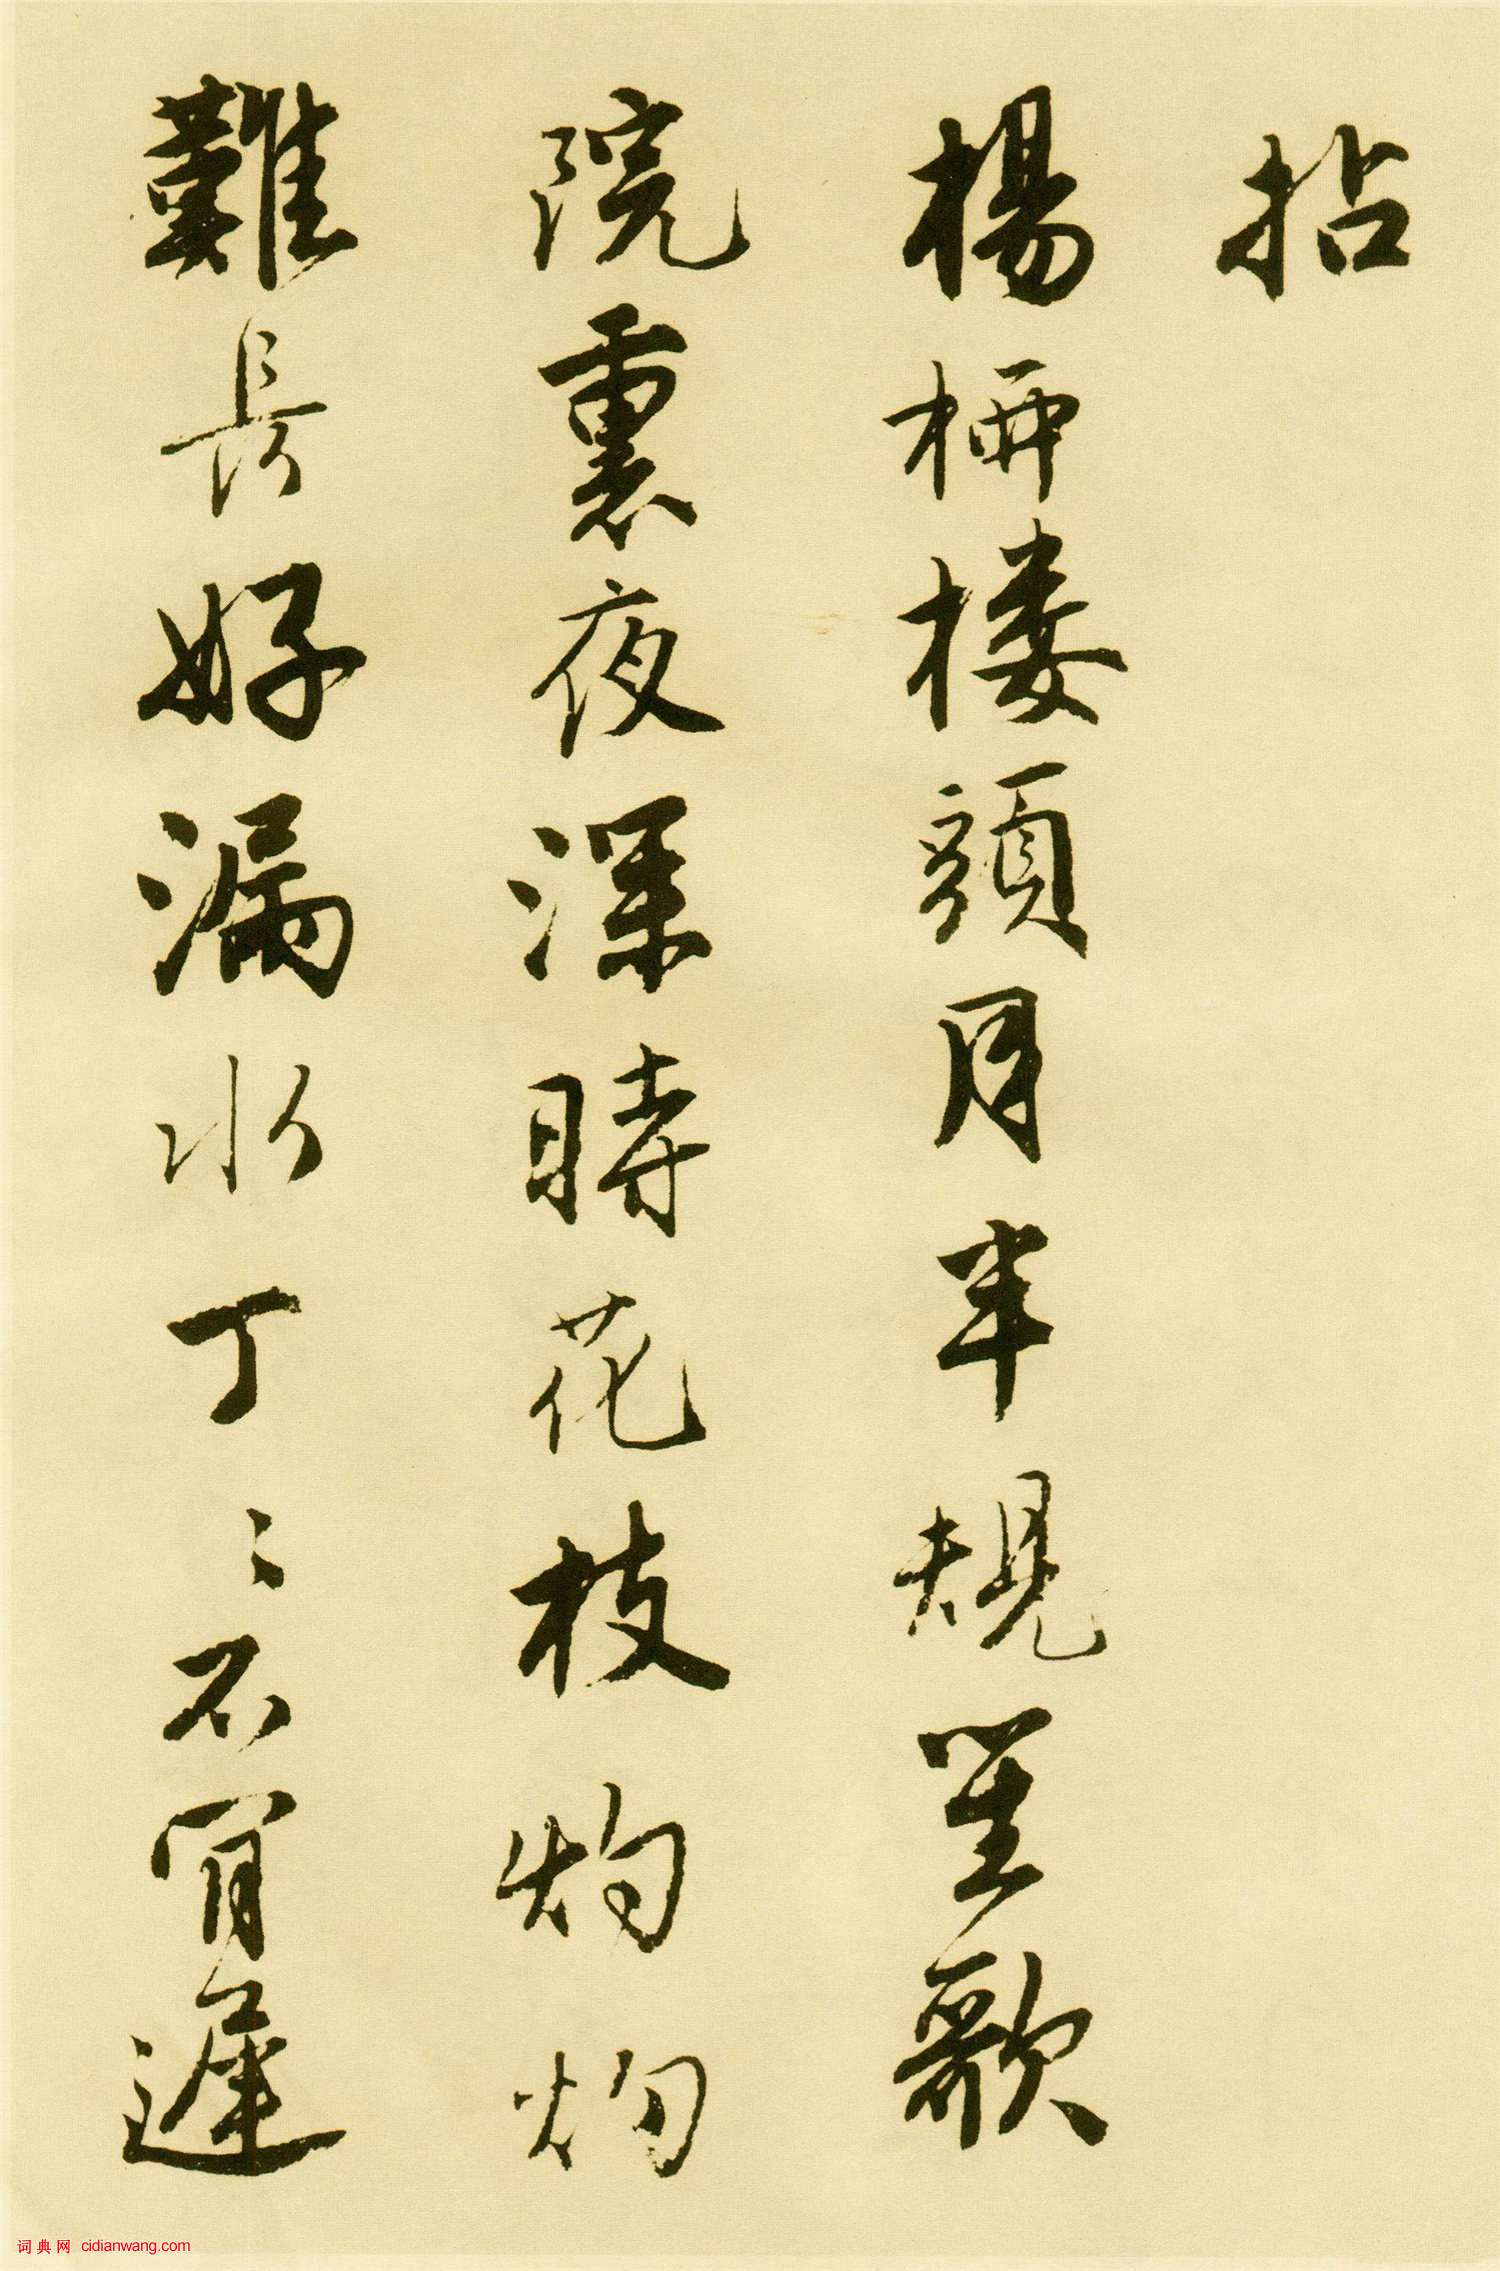 拈
楊栁楼頭月半規笙歌
院裏夜深時花枝灼灼
難長好漏水丁〻不肯遲
词典网 cidianwang.com